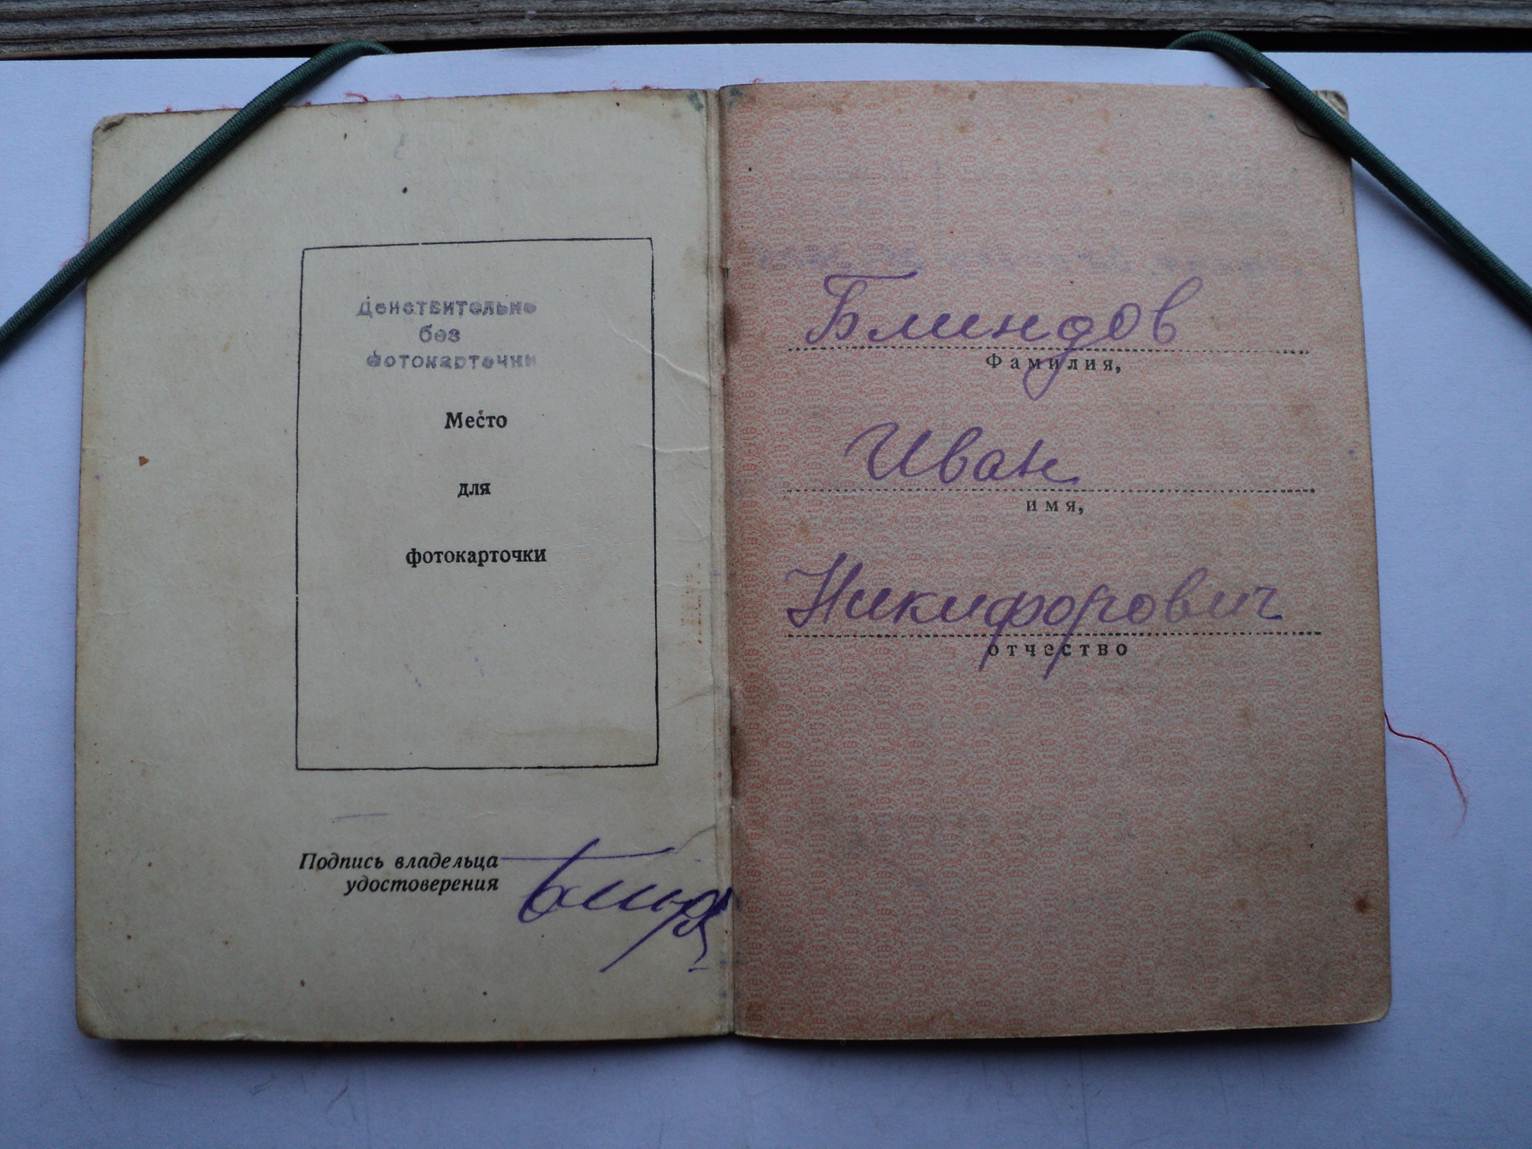 Действительно
без
фотокарточки
Место
для
фотокарточки
Подпись владельца
удостоверения
Блиндов
Фамилия,
Иван
имя,
Никифорович
отчество